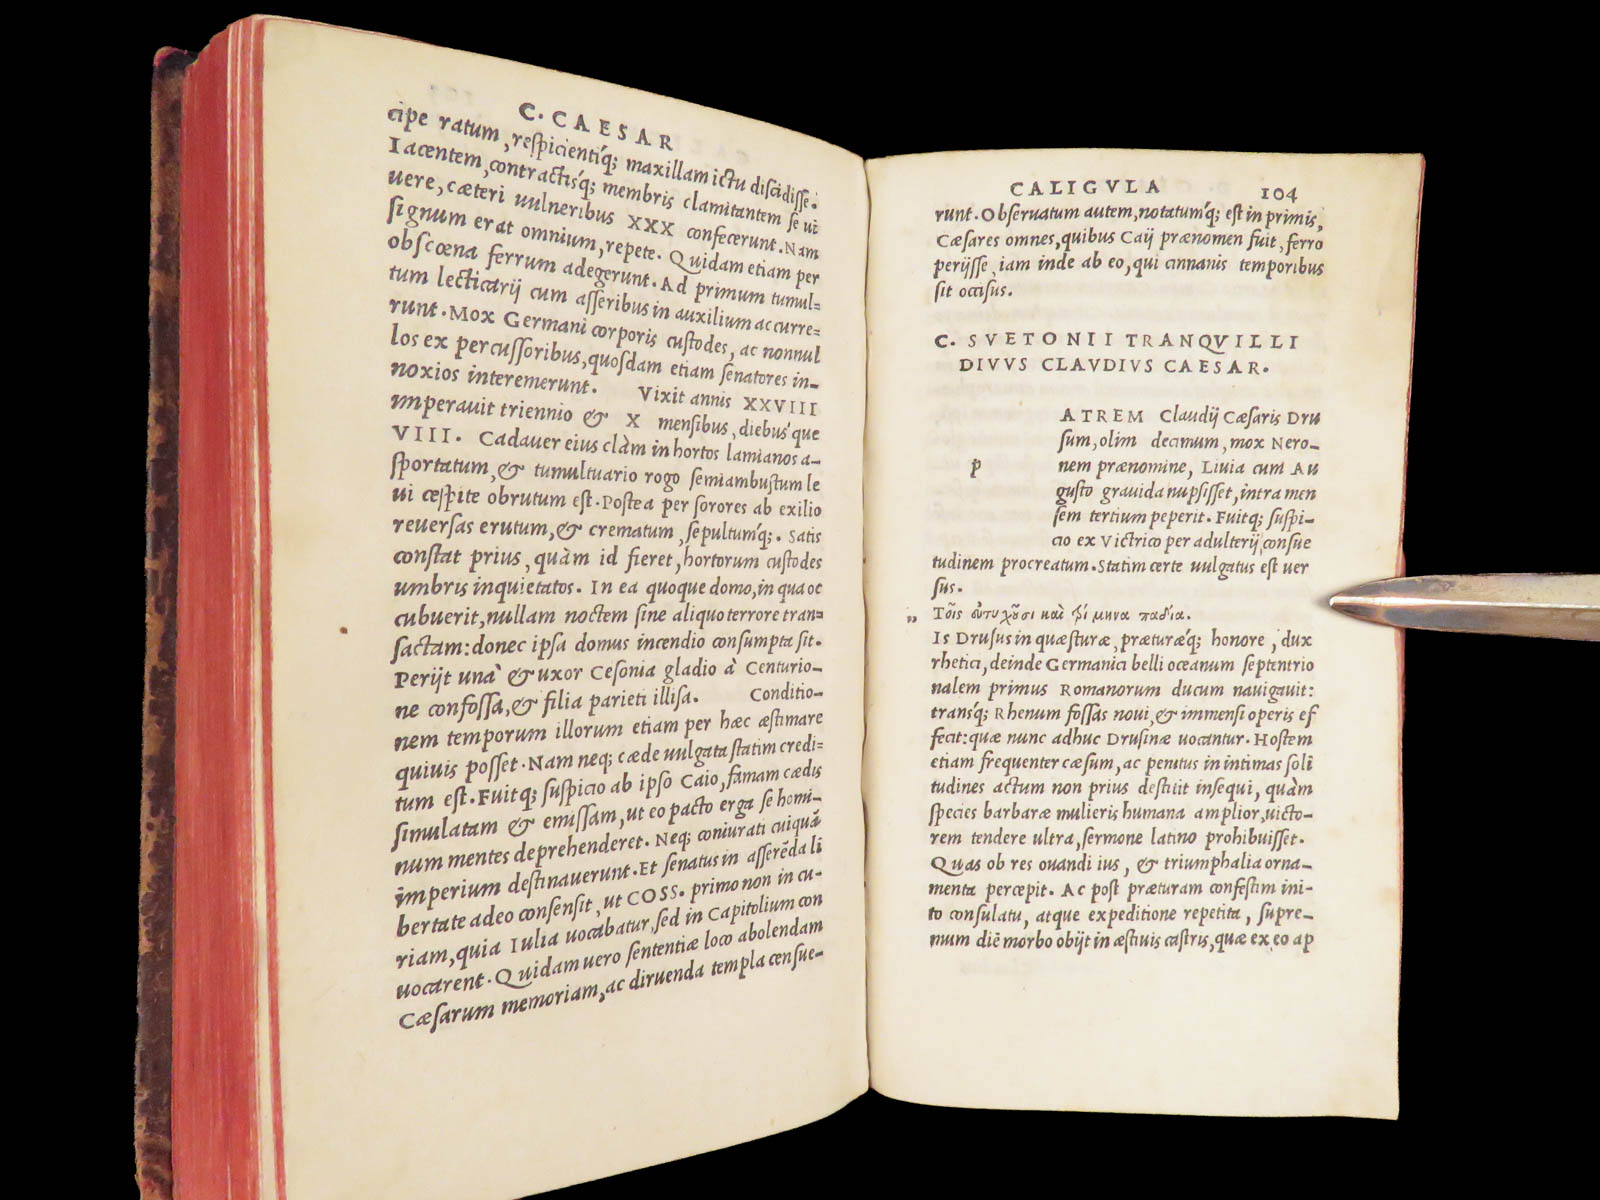 C. CAESAR
cipe ratum, reſpicientiq; maxillam ictu diſcidiſſe.
Iacentem, contractisq; membris clamitantem ſe ui
uere, cæteri uulneribus XXX confecerunt. Nam
ſignum erat omnium, repete. Quidam etiam per
obſcœna ferrum adegerunt. Ad primum tumul=
tum lecticarij cum aſſeribus in auxilium accurre=
runt. Mox Germani corporis cuſtodes, ac nonnul
los ex percuſſoribus, quoſdam etiam ſenatores in-
noxios interemerunt. Vixit annis XXVIII
imperauit triennio & X menſibus, diebus que
VIII. Cadauer eius clàm in hortos lamianos a-
ſportatum, & tumultuario rogo ſemiambuſtum le
ui ceſpite obrutum eſt. Poſtea per ſorores ab exilio
reuerſas erutum, & crematum, ſepultumq́;. Satis
conſtat prius, quàm id fieret, hortorum cuſtodes
umbris inquietatos. In ea quoque domo, in qua oc
cubuerit, nullam noctem ſine aliquo terrore tran=
ſactam: donec ipſa domus incendio conſumpta ſit.
Perijt unà & uxor Ceſonia gladio à Centurio-
ne confoſſa, & filia parieti illiſa. Conditio-
nem temporum illorum etiam per hæc æſtimare
quiuis poſſet. Nam neq; cæde uulgata ſtatim credi=
tum eſt. Fuitq; ſuſpicio ab ipſo Caio, famam cædis
ſimulatam & emiſſam, ut eo pacto erga ſe homi-
num mentes deprehenderet. Neq; coniurati cuiquã
imperium deſtinauerunt. Et ſenatus in aſſerẽda li
bertate adeo conſenſit, ut COSS. primo non in cu-
riam, quia Iulia uocabatur, ſed in Capitolium con
uocarent. Quidam uero ſententiæ loco abolendam
Cæſarum memoriam, ac diruenda templa cenſue-
CALIGVLA 104
runt. Obſeruatum autem, notatumq́; eſt in primis,
Cæſares omnes, quibus Caij prænomen fuit, ferro
perijſſe, iam inde ab eo, qui cinnanis temporibus
ſit occiſus.
C. SVETONII TRANQVILLI
DIVVS CLAVDIVS CAESAR.
p
ATREM Claudij Cæſaris Dru
ſum, olim decimum, mox Nero-
nem prænomine, Liuia cum Au
guſto grauida nupſiſſet, intra men
ſem tertium peperit. Fuitq; ſuſpi-
cio ex Victrico per adulterij conſue
tudinem procreatum. Statim certe uulgatus eſt uer
ſus.
„ Τοῖς
Is Druſus in quæſturæ, præturæq́; honore, dux
rhetici, deinde Germanici belli oceanum ſeptentrio
nalem primus Romanorum ducum nauigauit:
transq́; Rhenum foſſas noui, & immenſi operis ef
fecit: quæ nunc adhuc Druſinæ uocantur. Hoſtem
etiam frequenter cæſum, ac penitus in intimas ſoli
tudines actum non prius deſtitit inſequi, quàm
ſpecies barbaræ mulieris humana amplior, uicto-
rem tendere ultra, ſermone latino prohibuiſſet.
Quas ob res ouandi ius, & triumphalia orna-
menta percepit. Ac poſt præturam confeſtim ini-
to conſulatu, atque expeditione repetita, ſupre-
mum diẽ morbo obijt in æſtiuis caſtris, quæ ex eo ap